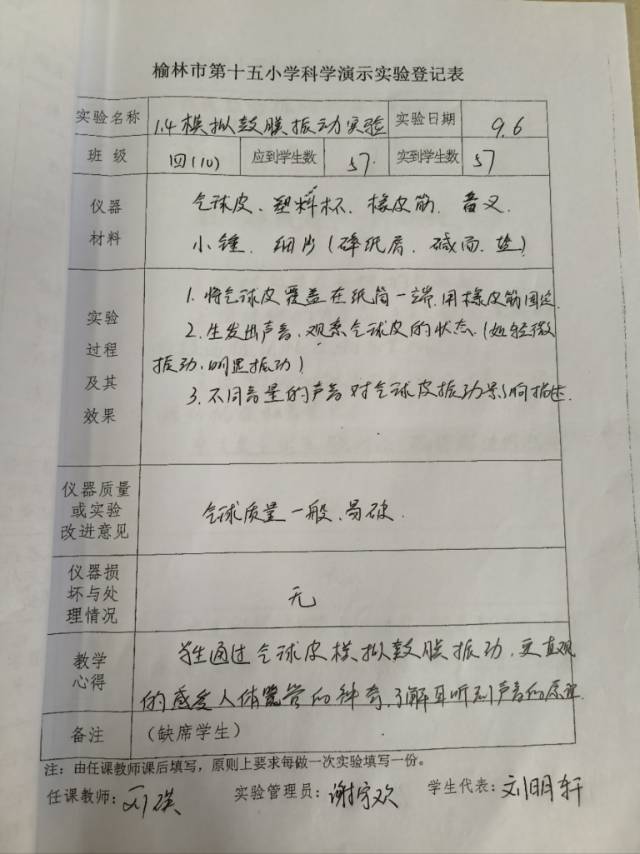 榆林市第十五小学科学演示实验登记表
实验名称 1.4模拟鼓膜振动实验 实验日期 9.6
班 级 四(10) 应到学生数 57. 实到学生数 57
仪器 气球皮、塑料杯、橡皮筋、音叉.
材料 小锤、细沙(碎纸屑、碱面、盐)
1.将气球皮覆盖在纸筒一端.用橡皮筋固定.
实验 2.生发出声音,观察气球皮的状态.(如轻微
过程 振动.明显振动)
及其 3.不同音量的声音对气球皮振动影响描述.
效果
仪器质量
或实验 气球质量一般、易破.
改进意见
仪器损
坏与处 无
理情况
教学 学生通过气球皮模拟鼓膜振动,更直观
心得 的感受人体器官的神奇,了解耳听到声音的原理.
备注 (缺席学生)
注:由任课教师课后填写,原则上要求每做一次实验填写一份。
任课教师: 实验管理员:谢宁欢 学生代表:刘明轩